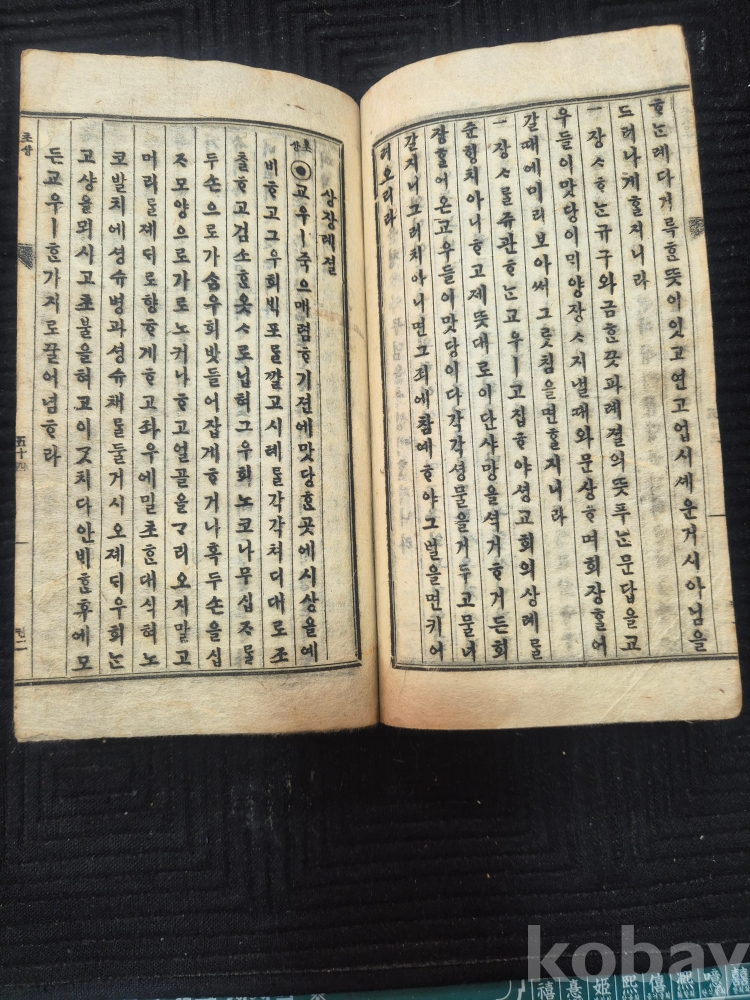 ᄒᆞᄂᆞᆫ례다거륵ᄒᆞᆫ뜻이잇고연고업시셰운거시아님을
드러나게ᄒᆞᆯ지니라
一장ᄉᆞᄒᆞᄂᆞᆫ규구와금ᄒᆞᆫ끗과례졀의뜻푸ᄂᆞᆫ문답을교
우들이맛당이ᄆᆡ양장ᄉᆞ지낼때와문상ᄒᆞ며회장ᄒᆞᆯ어
갈때에미리보아써그릇침을면ᄒᆞᆯ지니라
一장ᄉᆞᄅᆞᆯ쥬관ᄒᆞᄂᆞᆫ교우ㅣ고집ᄒᆞ야셩교회의상례ᄅᆞᆯ
준ᄒᆡᆼ치아니ᄒᆞ고제뜻대로이단샤망을셕거ᄒᆞ거든회
장ᄒᆞᆯ어온교우들이맛당이다각각셩물을거두고물너
갈지니그러치아니면그죄에참예ᄒᆞ야그벌을면키어
려오리라
상장례졀
초상
교우ㅣ죽으매렴ᄒᆞ기젼에맛당ᄒᆞᆫ곳에시상을예
비ᄒᆞ고그우희ᄇᆡᆨ포ᄅᆞᆯ깔고시례ᄅᆞᆯ각각처디대로조
촐ᄒᆞ고검소ᄒᆞᆫ옷ᄉᆞ로닙혀그우희노코나무십ᄌᆞᄅᆞᆯ
두손으로가ᄉᆞᆷ우희밧들어잡게ᄒᆞ거나혹두손을십
ᄌᆞ모양으로가로노커나ᄒᆞ고얼골을ᄀᆞ리오지말고
머리ᄅᆞᆯ졔ᄃᆡ로향ᄒᆞ게ᄒᆞ고좌우에밀초ᄒᆞᆫ대식혀노
코발치에셩슈병과셩슈채ᄅᆞᆯ둘거시오졔ᄃᆡ우희ᄂᆞᆫ
고샹을뫼시고초불을혀고이ᄀᆞᆺ치다안ᄇᆡᄒᆞᆫ후에모
든교우ㅣᄒᆞᆫ가지로꿀어념ᄒᆞ라
초상
五十四
권二
kobay
禧意姬熙僖熈噫囍